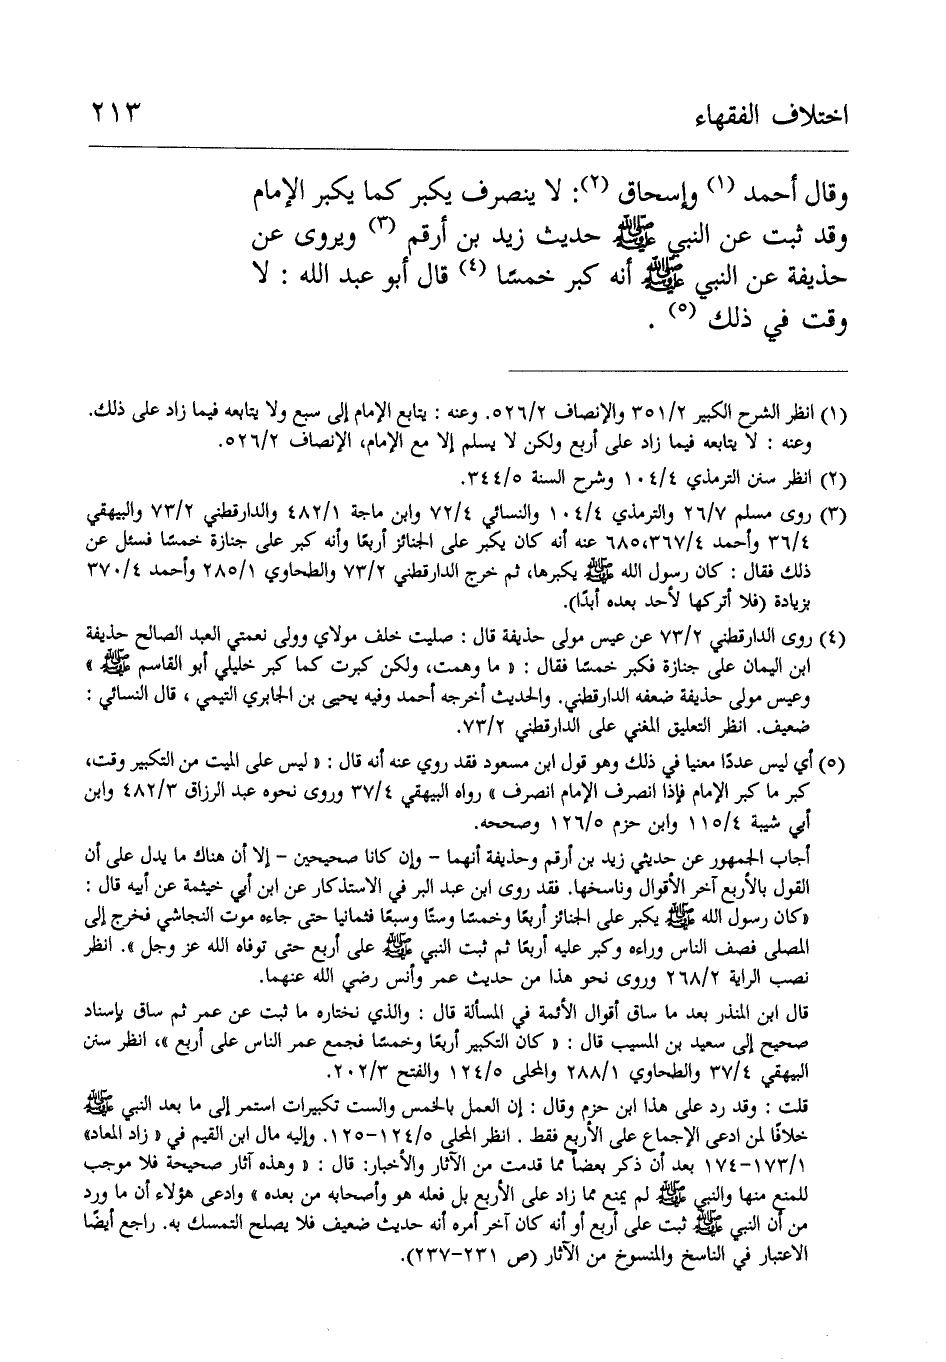 اختلاف الفقهاء ٢١٣
وقال أحمد (١) وإسحاق (٢): لا ينصرف يكبر كما يكبر الإمام
وقد ثبت عن النبي ﷺ حديث زيد بن أرقم (٣) ويروى عن
حذيفة عن النبي ﷺ أنه كبر خمسًا (٤) قال أبو عبد الله : لا
وقت في ذلك (٥) .
(١) انظر الشرح الكبير ٣٥١/٢ والإنصاف ٥٢٦/٢. وعنه : يتابع الإمام إلى سبع ولا يتابعه فيما زاد على ذلك.
وعنه : لا يتابعه فيما زاد على أربع ولكن لا يسلم إلا مع الإمام، الإنصاف ٥٢٦/٢.
(٢) انظر سنن الترمذي ١٠٤/٤ وشرح السنة ٣٤٤/٥.
(٣) روى مسلم ٢٦/٧ والترمذي ١٠٤/٤ والنسائي ٧٢/٤ وابن ماجة ٤٨٢/١ والدارقطني ٧٣/٢ والبيهقي
٣٦/٤ وأحمد ٦٨٥،٣٦٧/٤ عنه أنه كان يكبر على الجنائز أربعًا وأنه كبر على جنازة خمسًا فسئل عن
ذلك فقال : كان رسول الله ﷺ يكبرها، ثم خرج الدارقطني ٧٣/٢ والطحاوي ٢٨٥/١ وأحمد ٣٧٠/٤
بزيادة (فلا أتركها لأحد بعده أبدًا).
(٤) روى الدارقطني ٧٣/٢ عن عيس مولى حذيفة قال : صليت خلف مولاي وولى نعمتي العبد الصالح حذيفة
ابن اليمان على جنازة فكبر خمسًا فقال : « ما وهمت، ولكن كبرت كما كبر خليلي أبو القاسم ﷺ »
وعيس مولى حذيفة ضعفه الدارقطني. والحديث أخرجه أحمد وفيه يحيى بن الجابري التيمي ، قال النسائي :
ضعيف. انظر التعليق المغني على الدارقطني ٧٣/٢.
(٥) أي ليس عددًا معنيا في ذلك وهو قول ابن مسعود فقد روي عنه أنه قال : « ليس على الميت من التكبير وقت،
كبر ما كبر الإمام فإذا انصرف الإمام انصرف » رواه البيهقي ٣٧/٤ وروى نحوه عبد الرزاق ٤٨٢/٣ وابن
أبي شيبة ١١٥/٤ وابن حزم ١٢٦/٥ وصححه.
أجاب الجمهور عن حديثي زيد بن أرقم وحذيفة أنهما – وإن كانا صحيحين – إلا أن هناك ما يدل على أن
القول بالأربع آخر الأقوال وناسخها. فقد روى ابن عبد البر في الاستذكار عن ابن أبي خيثمة عن أبيه قال :
«كان رسول الله ﷺ يكبر على الجنائز أربعًا وخمسًا وستًا وسبعًا فثمانيا حتى جاءه موت النجاشي فخرج إلى
المصلى فصف الناس وراءه وكبر عليه أربعًا ثم ثبت النبي ﷺ على أربع حتى توفاه الله عز وجل ». انظر
نصب الراية ٢٦٨/٢ وروى نحو هذا من حديث عمر وأنس رضي الله عنهما.
قال ابن المنذر بعد ما ساق أقوال الأئمة في المسألة قال : والذي نختاره ما ثبت عن عمر ثم ساق بإسناد
صحيح إلى سعيد بن المسيب قال : « كان التكبير أربعًا وخمسًا فجمع عمر الناس على أربع »، انظر سنن
البيهقي ٣٧/٤ والطحاوي ٢٨٨/١ والمحلى ١٢٤/٥ والفتح ٢٠٢/٣.
قلت : وقد رد على هذا ابن حزم وقال : إن العمل بالخمس والست تكبيرات استمر إلى ما بعد النبي ﷺ
خلافًا لمن ادعى الإجماع على الأربع فقط . انظر المحلى ١٢٤/٥–١٢٥. وإليه مال ابن القيم في « زاد المعاد»
١٧٣/١–١٧٤ بعد أن ذكر بعضاً مما قدمت من الآثار والأخبار: قال : « وهذه آثار صحيحة فلا موجب
للمنع منها والنبي ﷺ لم يمنع مما زاد على الأربع بل فعله هو وأصحابه من بعده » وادعى هؤلاء أن ما ورد
من أن النبي ﷺ ثبت على أربع أو أنه كان آخر أمره أنه حديث ضعيف فلا يصلح التمسك به. راجع أيضًا
الاعتبار في الناسخ والمنسوخ من الآثار (ص ٢٣١–٢٣٧).